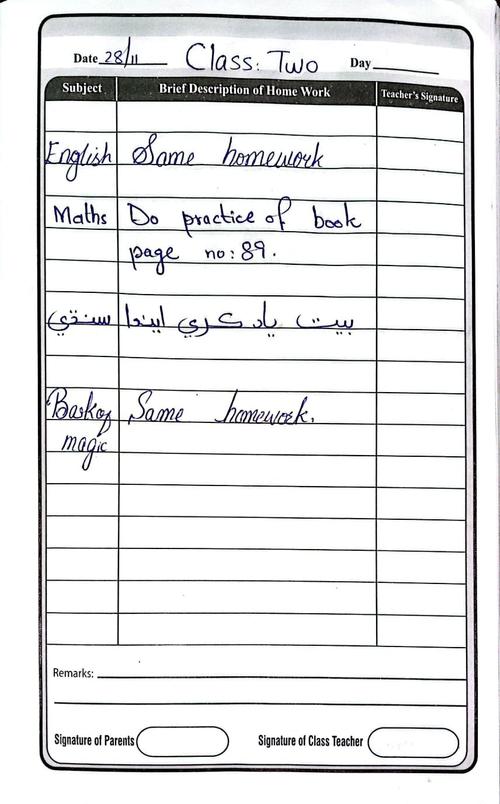 Date 28/11 Class: Two Day
Subject Brief Description of Home Work Teacher's Signature
English Same homework
Maths Do practice of book
page no: 89.
سنڌي بيت ياد ڪري ايندا
Baskof Same homework.
magic
Remarks:
Signature of Parents Signature of Class Teacher